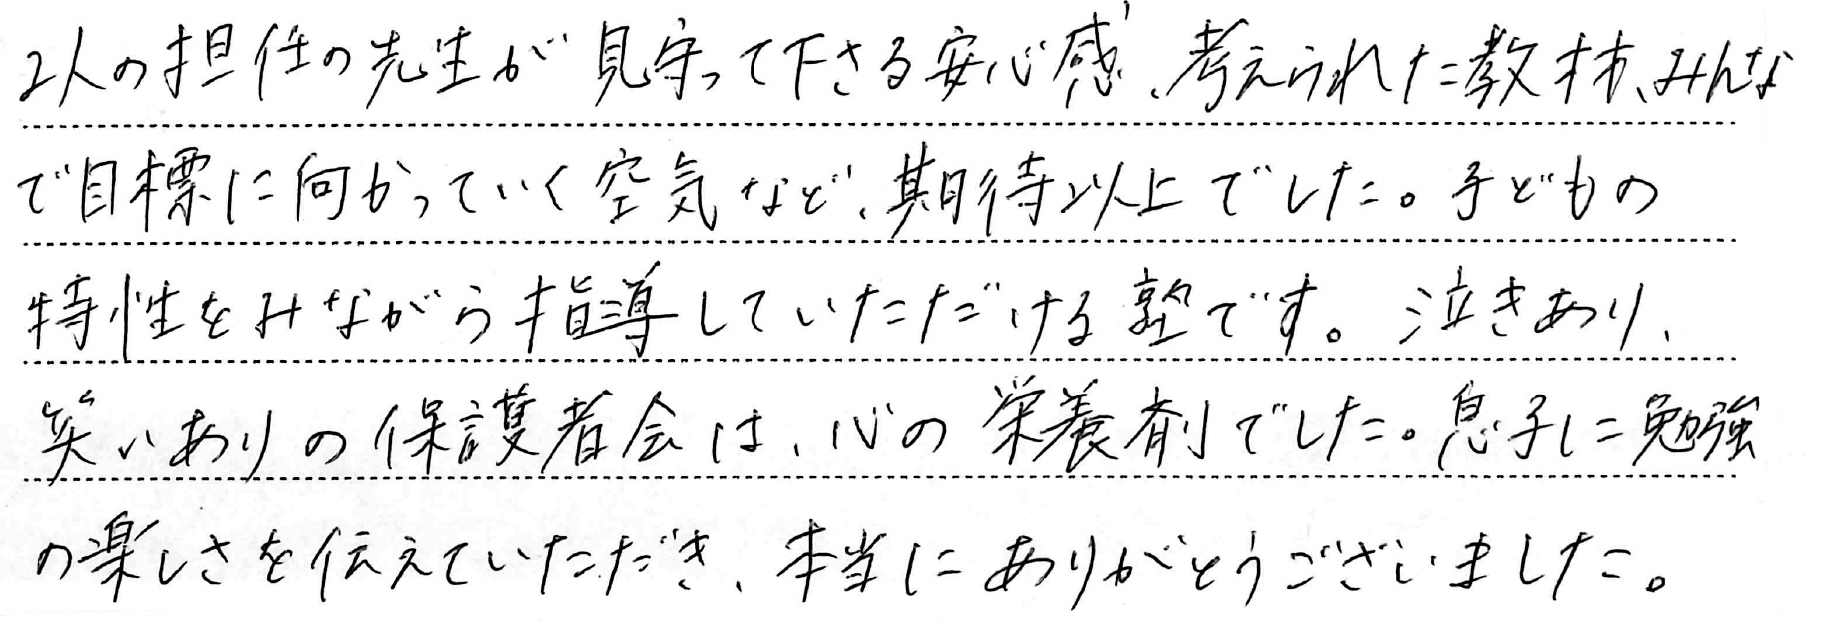 2人の担任の先生が見守って下さる安心感、考えられた教材、みんな
で目標に向かっていく空気など、期待以上でした。子どもの
特性をみながら指導していただける塾です。泣きあり、
笑いありの保護者会は、心の栄養剤でした。息子に勉強
の楽しさを伝えていただき、本当にありがとうございました。